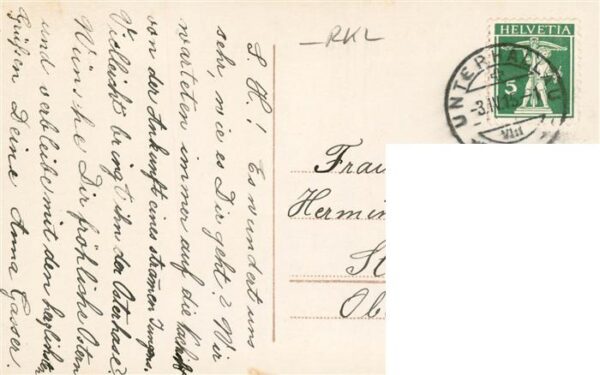 S. H.! Es wundert uns
sehr, wie es Dir geht? Wir
warteten immer auf die
von der Ankunft eines strammen Jungens.
Vielleicht bringt ihn der Osterhase?
Wünsche Dir fröhliche Ostern
und verbleibe mit den herzlichsten
Grüßen Deine Anna Gasser.
RKL
HELVETIA
5
UNTERHALLAU
3.IV.15
VIII
Frau
Hermin
St
Obe